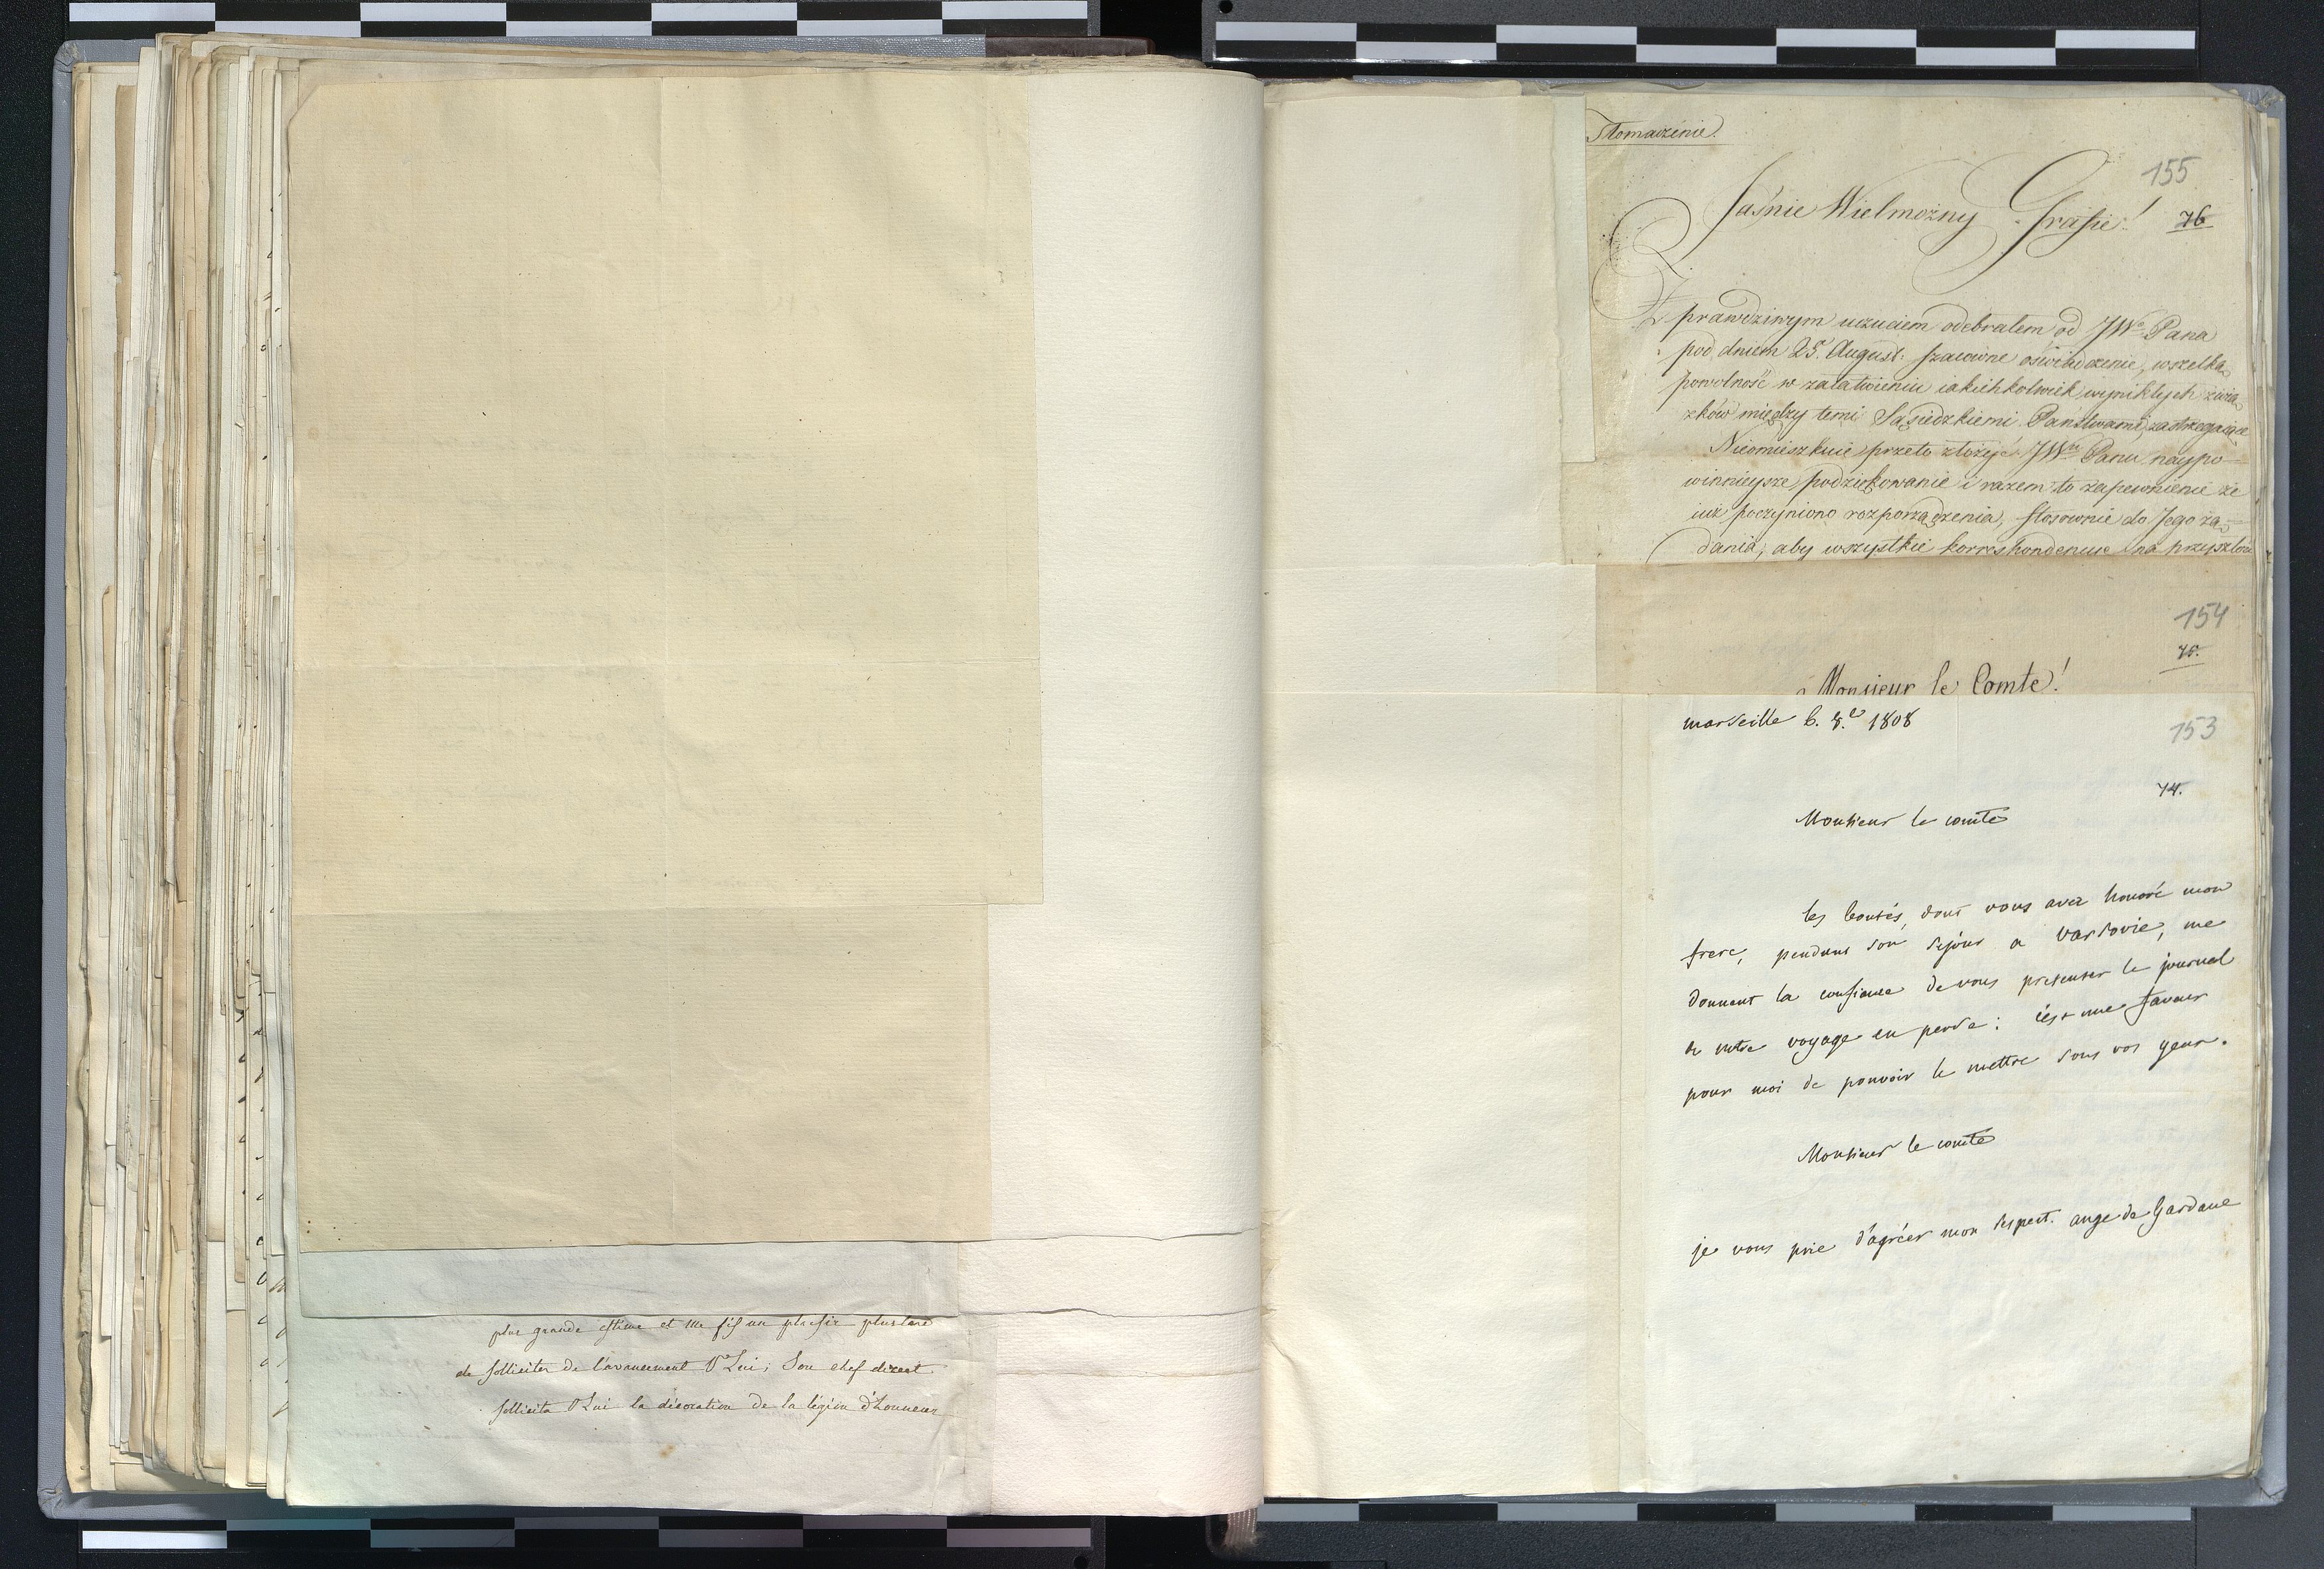 plus grande estime et me fis un plaisir plus tard
de solliciter de l'avancement Lui; Son chef direct
sollicita Lui la décoration de la légion d'honneur
Tłomaczenie.
155
Jaśnie Wielmożny Grafie!
76
Z prawdziwym uczuciem odebrałem od JWo Pana
pod dniem 25. August. szacowne oświadczenie, wszelką
powolność w załatwieniu iakichkolwiek wynikłych zwią-
zków między temi Sąsiedzkiemi Państwami, zastrzegaiące
Nieomieszkuię przeto złożyć JWu Panu naypo-
winnieysze podziękowanie i razem to zapewnienie że
iuż poczyniono rozporządzenia, stosownie do Jego żą-
dania, aby wszystkie korrespondencye na przyszłość
154
75.
Monsieur le Comte!
marseille 6. 8.e 1808
153
74.
Monsieur le comte
les bontés, dont vous avez honoré mon
frere, pendant son sejour a varsovie, me
donnent la confiance de vous presenter le journal
de notre voyage en perse: c'est une faveur
pour moi de pouvoir le mettre sous vos yeux.
Monsieur le comte
je vous prie d'agréer mon respect. ange de Gardane